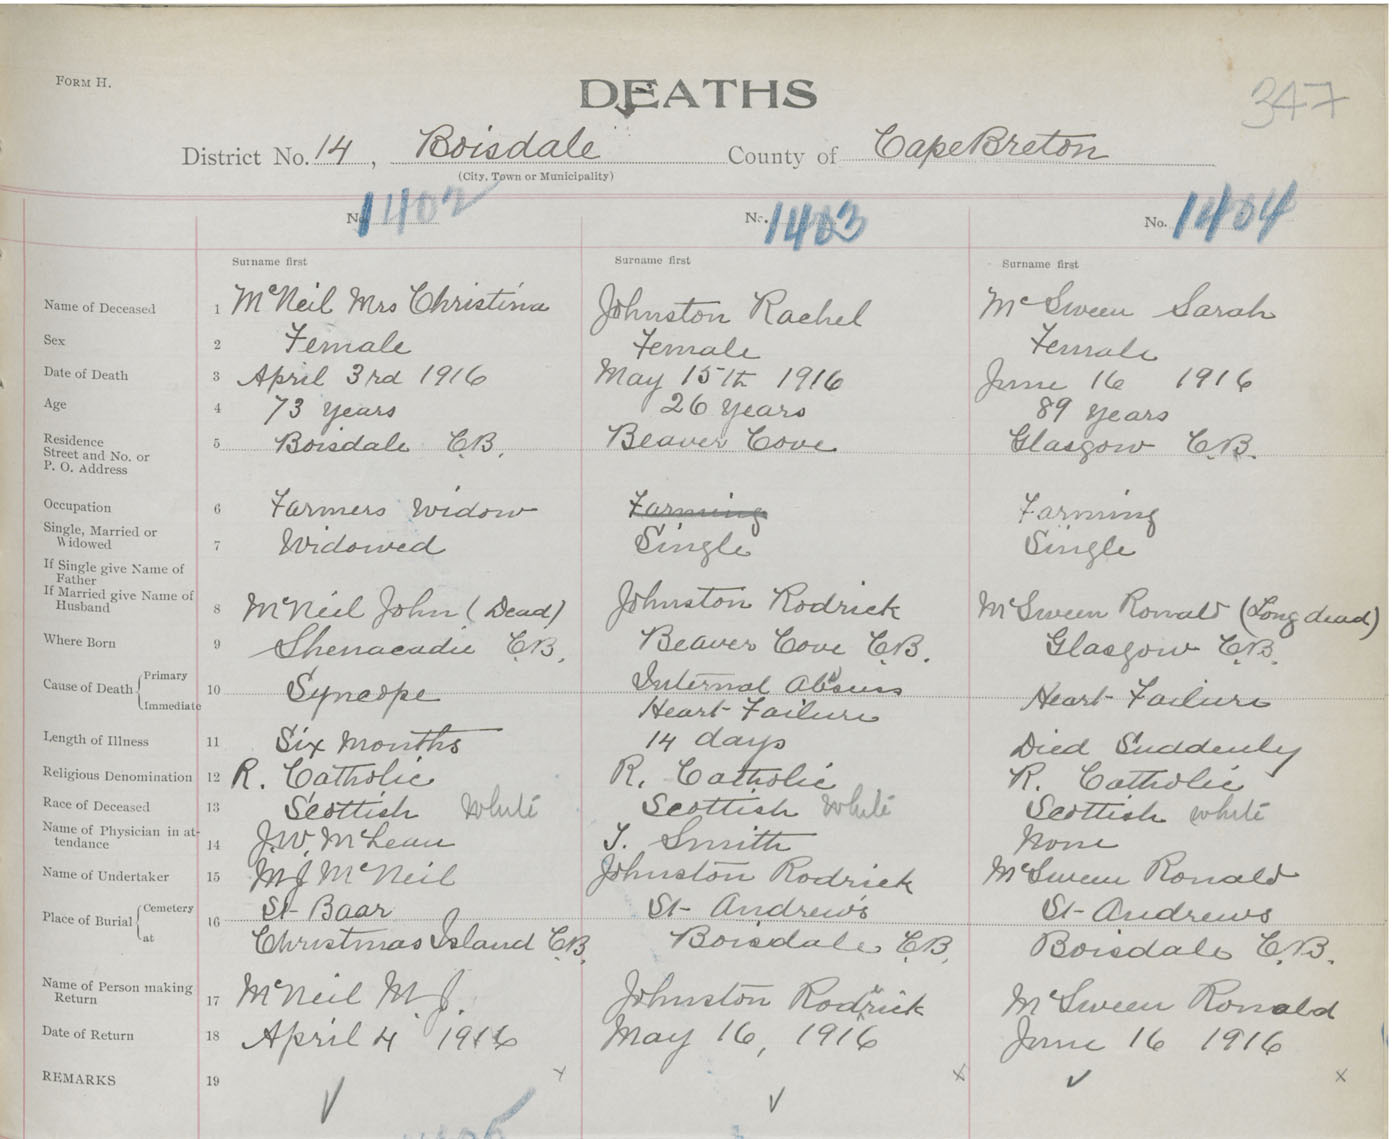 FORM H.
DEATHS
347
District No. 14, Boisdale County of Cape Breton
(City, Town or Municipality)
No. 1402 No. 1403 No. 1404
Surname first Surname first Surname first
Name of Deceased 1 McNeil Mrs Christina Johnston Rachel McSween Sarah
Sex 2 Female Female Female
Date of Death 3 April 3rd 1916 May 15th 1916 June 16 1916
Age 4 73 years 26 years 89 years
Residence
Street and No. or
P. O. Address 5 Boisdale C.B. Beaver Cove Glasgow C.B.
Occupation 6 Farmers Widow Farming Farming
Single, Married or
Widowed 7 Widowed Single Single
If Single give Name of
Father
If Married give Name of
Husband 8 McNeil John (Dead) Johnston Rodrick McSween Ronald (Long dead)
Where Born 9 Shenacadie C.B. Beaver Cove C.B. Glasgow C.B.
Cause of Death { Primary
Immediate 10 Syncope Internal Abscess Heart Failure
Heart Failure
Length of Illness 11 Six Months 14 days Died Suddenly
Religious Denomination 12 R. Catholic R. Catholic R. Catholic
Race of Deceased 13 Scottish White Scottish White Scottish white
Name of Physician in at-
tendance 14 J.W. McLean T. Smith None
Name of Undertaker 15 M J McNeil Johnston Rodrick McSween Ronald
Place of Burial { Cemetery 16 St- Baar St- Andrew's St- Andrews
at Christmas Island C.B. Boisdale C.B. Boisdale C.B.
Name of Person making
Return 17 McNeil M J. Johnston Rodrick McSween Ronald
Date of Return 18 April 4 1916 May 16, 1916 June 16 1916
REMARKS 19 x x x